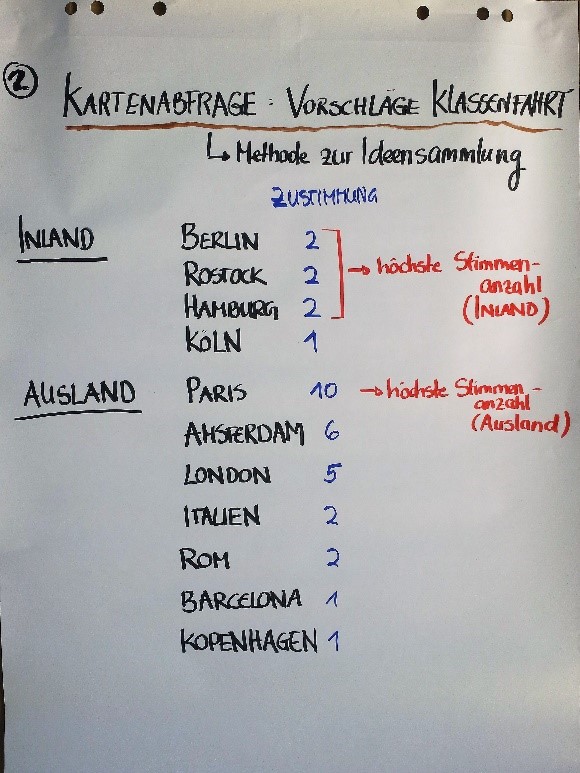 2
KARTENABFRAGE : VORSCHLÄGE KLASSENFAHRT
↳ Methode zur Ideensammlung
ZUSTIMMUNG
INLAND BERLIN 2
ROSTOCK 2
HAMBURG 2
KÖLN 1
→ höchste Stimmen-
anzahl
(INLAND)
AUSLAND PARIS 10 → höchste Stimmen-
anzahl
(Ausland)
AMSTERDAM 6
LONDON 5
ITALIEN 2
ROM 2
BARCELONA 1
KOPENHAGEN 1